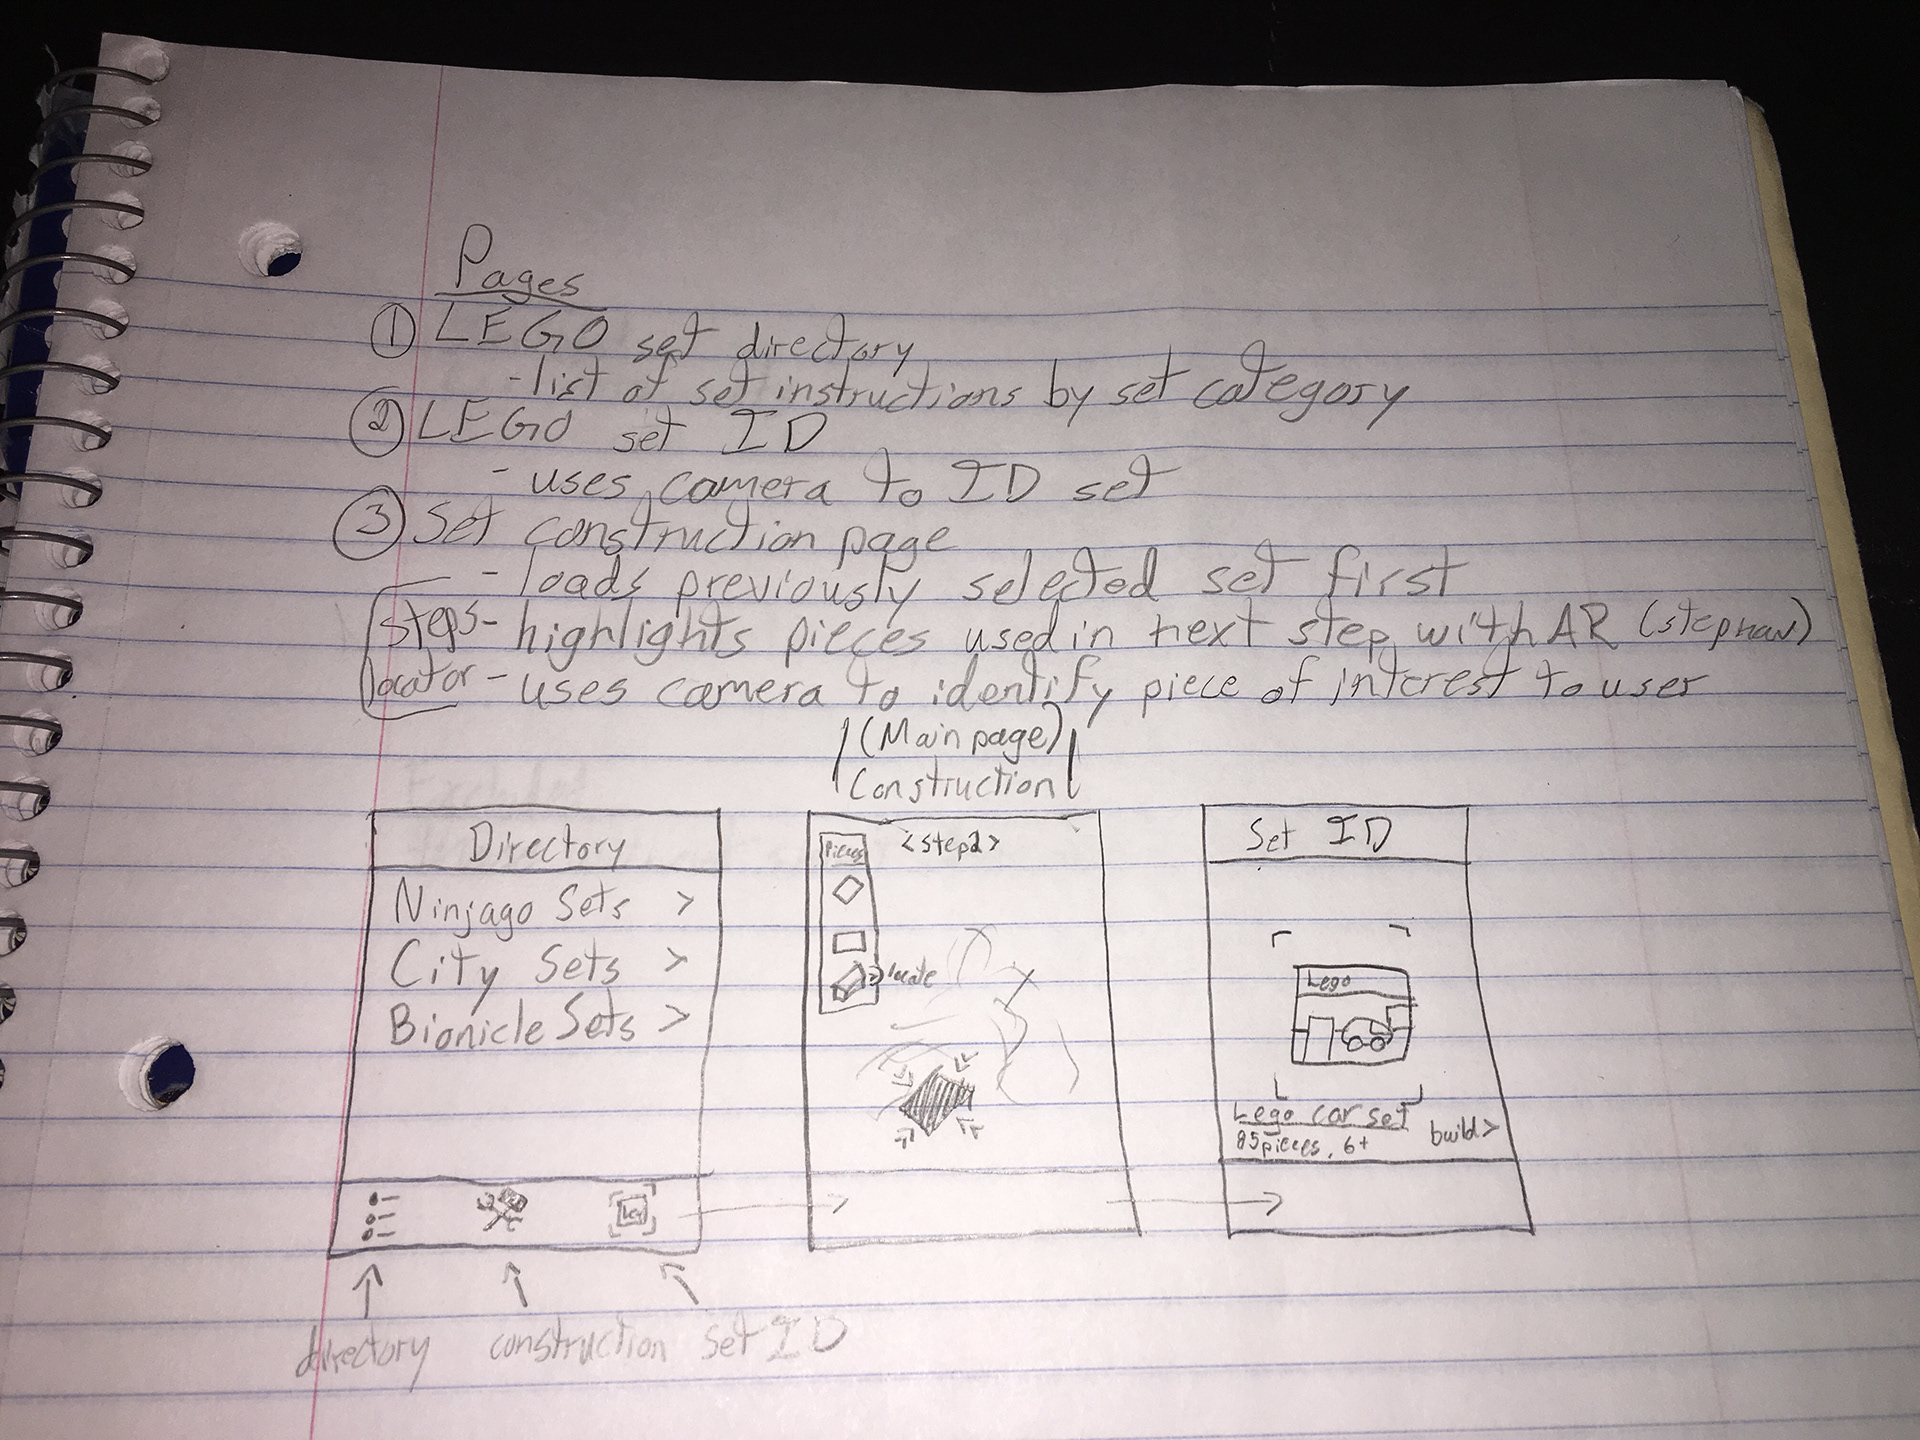 Pages
① LEGO set directory
- list of set instructions by set category
② LEGO set ID
- uses camera to ID set
③ Set construction page
- loads previously selected set first
Steps - highlights pieces used in next step with AR (step nav)
locator - uses camera to identify piece of interest to user
(Main page)
Construction
Directory
Ninjago Sets >
City Sets >
Bionicle Sets >
Pieces
<step2>
> locate
Set ID
Lego
Lego car set
85 pieces, 6+
build>
directory construction set ID